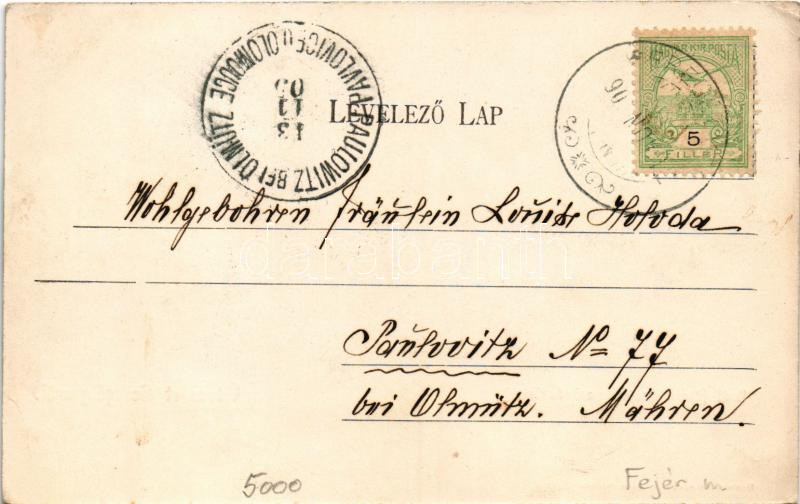 PAULOWITZ BEI OLMÜTZ
PAVLOVICE U OLOMOUCE
13
11
05
LEVELEZŐ LAP
MAGYAR KIR. POSTA
5
FILLÉR
Wohlgebohren Fräulein Louise Holoda
darabanth
Paulovitz No 77
bei Olmütz. Mähren.
5000
Fejér m